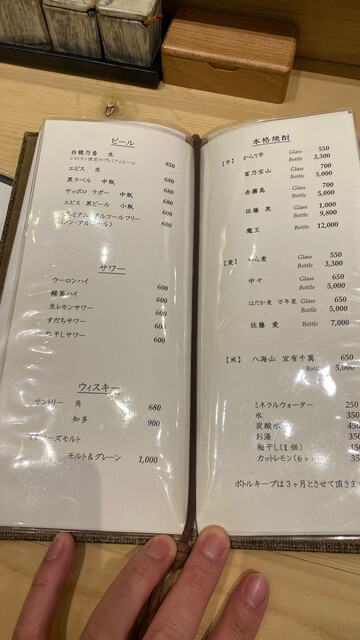 ビール
白穂乃香 生
レストラン限定のプレミアムビール 850
エビス 生 680
黒ラベル 中瓶 680
サッポロ ラガー 中瓶 680
エビス 黒ビール 小瓶 680
プレミアム アルコールフリー 600
(ノン・アルコール)
サワー
ウーロンハイ 600
緑茶ハイ 600
生レモンサワー 600
すだちサワー 600
梅干しサワー 600
ウィスキー
サントリー 角 680
知多 900
モルト
モルト&グレーン 1,000
本格焼酎
【芋】 からり芋 Glass 550
Bottle 3,300
富乃宝山 Glass 700
Bottle 5,000
赤霧島 Glass 700
Bottle 5,000
佐藤 黒 Glass 1,000
Bottle 9,800
魔王 Bottle 12,000
【麦】 麦 Glass 550
Bottle 3,300
中々 Glass 650
Bottle 5,000
はだか麦 万年星 Glass 650
Bottle 5,000
佐藤 麦 Bottle 7,000
【米】 八海山 宜有千萬 650
Bottle 5,000
ミネラルウォーター 250
氷 350
炭酸水 450
お湯 350
梅干し(1個) 150
カットレモン(6ヶ) 35
ボトルキープは3ヶ月とさせて頂きます